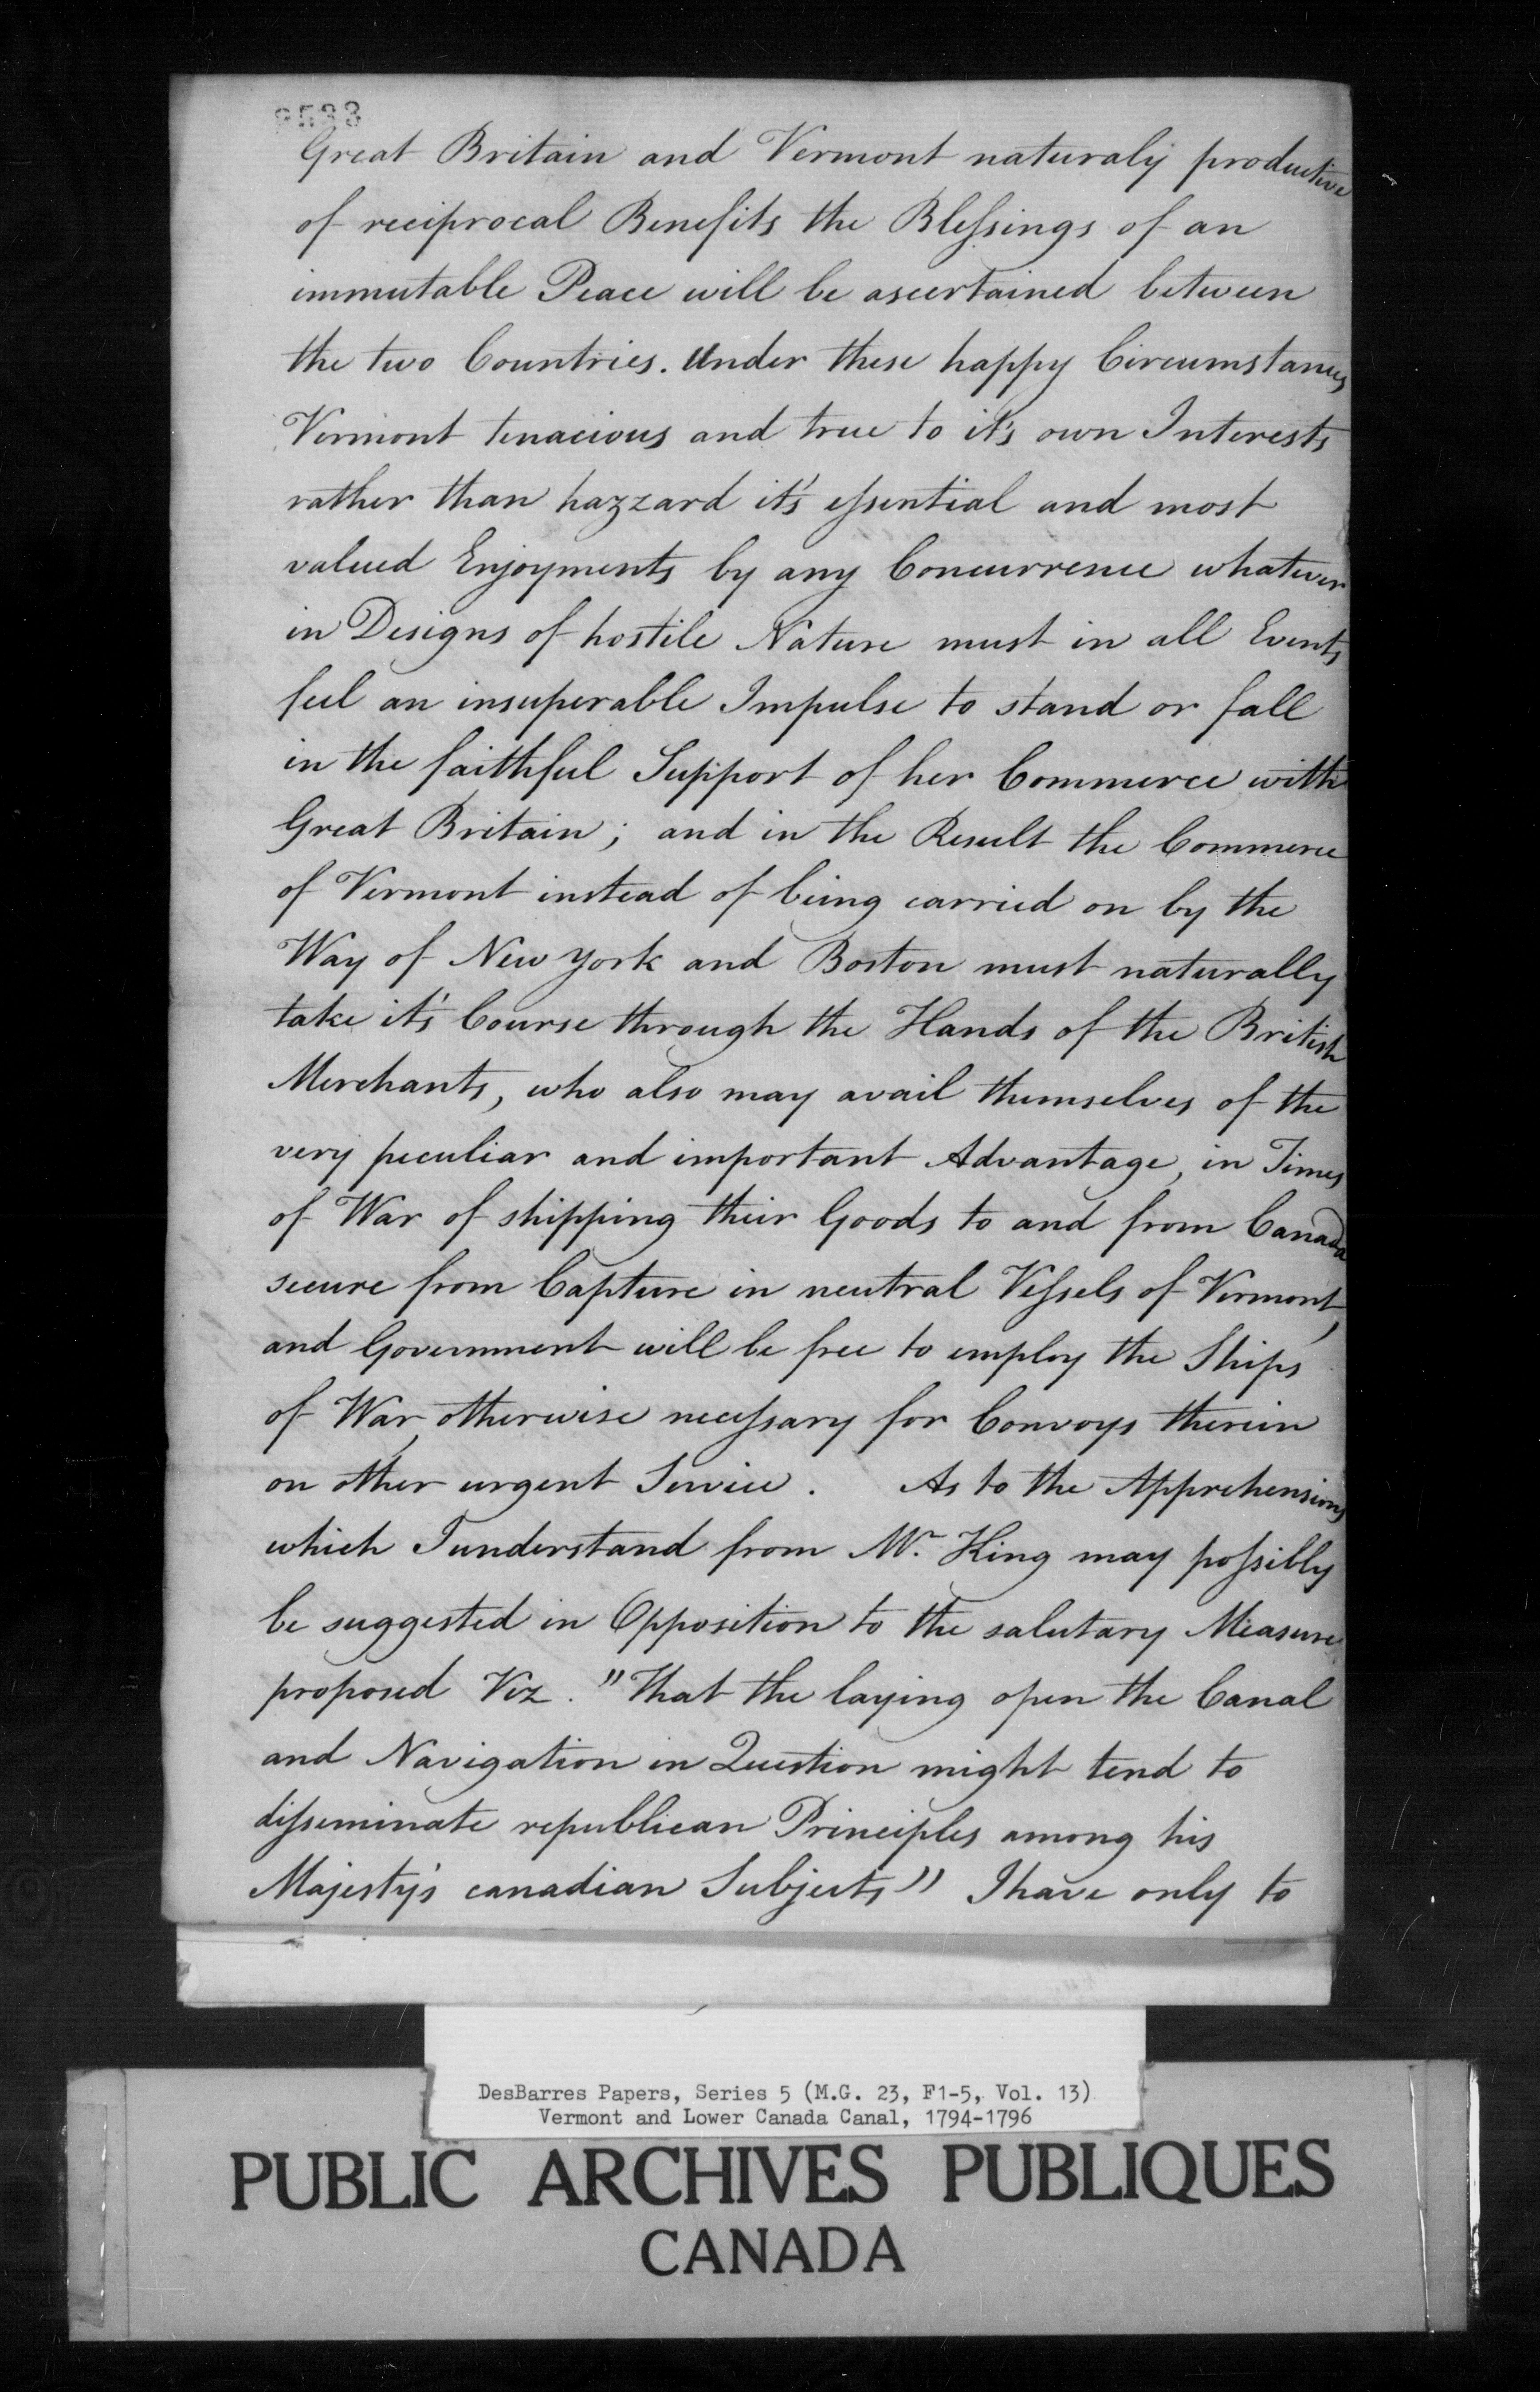 2533
Great Britain and Vermont naturaly productive
of reciprocal Benefits the Blessings of an
immutable Peace will be ascertained between
the two Countries. Under these happy Circumstances
Vermont tenacious and true to it's own Interests
rather than hazzard it's essential and most
valued Enjoyments by any Concurrence whatever
in Designs of hostile Nature must in all Events
feel an insuperable Impulse to stand or fall
in the faithful Support of her Commerce with
Great Britain; and in the Result the Commerce
of Vermont instead of being carried on by the
Way of New York and Boston must naturally
take it's Course through the Hands of the British
Merchants, who also may avail themselves of the
very peculiar and important Advantage, in Times
of War of shipping their Goods to and from Canada
secure from Capture in neutral Vessels of Vermont,
and Government will be free to employ the Ships
of War, otherwise necessary for Convoys therein
on other urgent Service. As to the Apprehensions
which I understand from Mr. King may possibly
be suggested in Opposition to the salutary Measure
proposed Viz. "That the laying open the Canal
and Navigation in Question might tend to
disseminate republican Principles among his
Majesty's canadian Subjects" I have only to
DesBarres Papers, Series 5 (M.G. 23, F1-5, Vol. 13)
Vermont and Lower Canada Canal, 1794-1796
PUBLIC ARCHIVES PUBLIQUES
CANADA